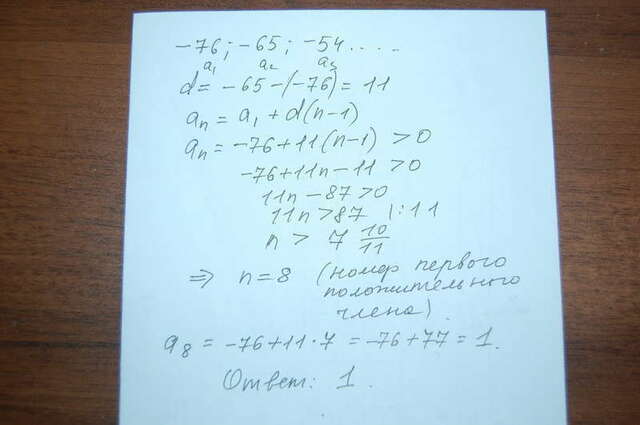 -76; -65; -54....
a₁ a₂ a₃
d = -65-(-76) = 11
aₙ = a₁ + d(n-1)
aₙ = -76+11(n-1) > 0
-76+11n-11 > 0
11n-87>0
11n>87 |:11
n > 7 10/11
⇒ n=8 (номер первого
положительного
члена).
a₈ = -76+11·7 = -76+77 = 1.
Ответ: 1.